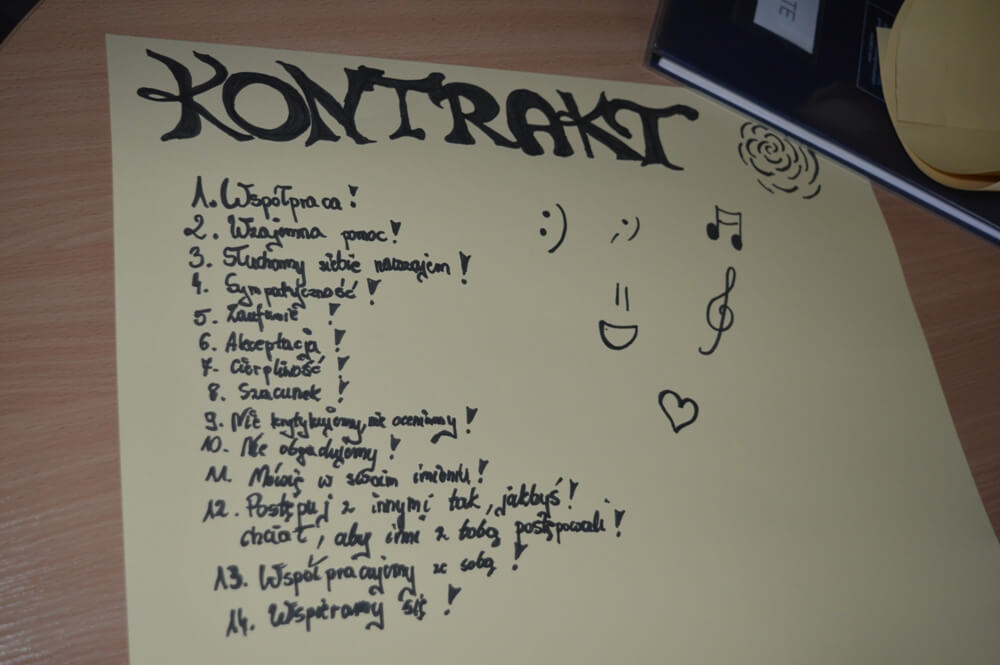 KONTRAKT
1. Współpraca!
2. Wzajemna pomoc!
3. Słuchamy siebie nawzajem!
4. Sympatyczność!
5. Zaufanie !
6. Akceptacja !
7. Cierpliwość !
8. Szacunek !
9. Nie krytykujemy, nie oceniamy !
10. Nie obgadujemy !
11. Mówię w swoim imieniu!
12. Postępuj z innymi tak, jakbyś!
chciał, aby inni z tobą postępowali!
13. Współpracujemy ze sobą !
14. Wspieramy się !
:) ;)